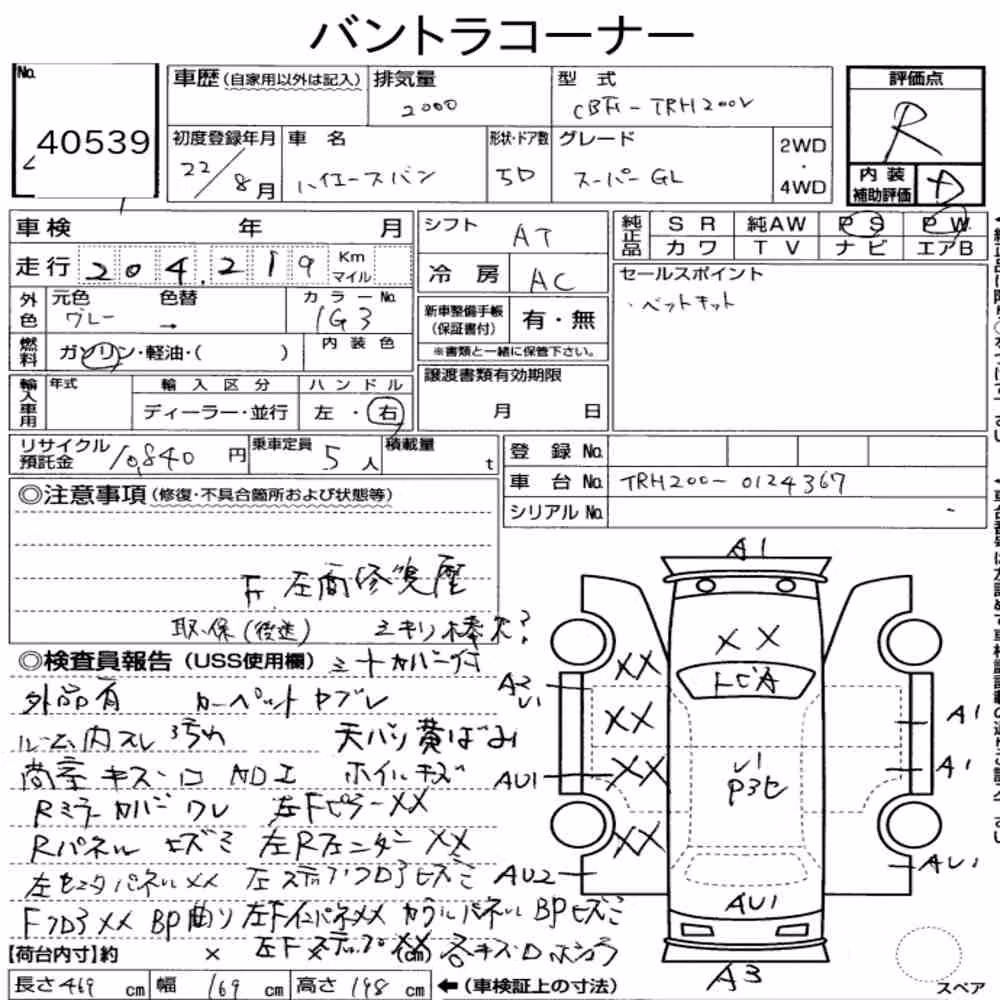 バントラコーナー
No.
40539
車歴(自家用以外は記入)
排気量
2000
型 式
CBF-TRH200V
評価点
R
初度登録年月
22/8月
車 名
ハイエースバン
形状・ドア数
5D
グレード
スーパーGL
2WD
・
4WD
内装
補助評価
D
車検 年 月
走行 204,219 Km
マイル
シフト
AT
冷房
AC
純正品
SR 純AW PS PW
カワ TV ナビ エアB
セールスポイント
・ベットキット
外色
元色 色替 カラーNo.
グレー → 1G3
燃料
ガソリン・軽油・( )
内装色
新車整備手帳
(保証書付)
有・無
※書類と一緒に保管下さい。
輸入車用
年式
輸入区分
ディーラー・並行
ハンドル
左・右
譲渡書類有効期限
月 日
リサイクル
預託金
10,840円
乗車定員
5人
積載量
t
登録No.
車台No. TRH200-0124367
シリアルNo. -
◎注意事項(修復・不具合箇所および状態等)
F.左席修復歴
取・保(後送)
◎検査員報告(USS使用欄)
外品有 カーペットヤブレ
ルーム内スレ汚れ 天バリ黄ばみ
荷室キズ・凹 加工 ホイルキズ
Rミラーカバーワレ 左FピラーXX
Rパネルヒズミ 左RインナーXX
左センタパネルXX 左ステップフロアヒズミ
FフロアXX BP曲り 左FインパネXX カウルパネルBPヒズミ
左FステップXX 各キズ凹
【荷台内寸】約 × (cm)
長さ469cm 幅169cm 高さ198cm ←(車検証上の寸法)
A1
XX
XX
A2
U1
XX
A1
AU1
XX
U1
A1
XX
AU2
AU1
AU1
A3
スペア